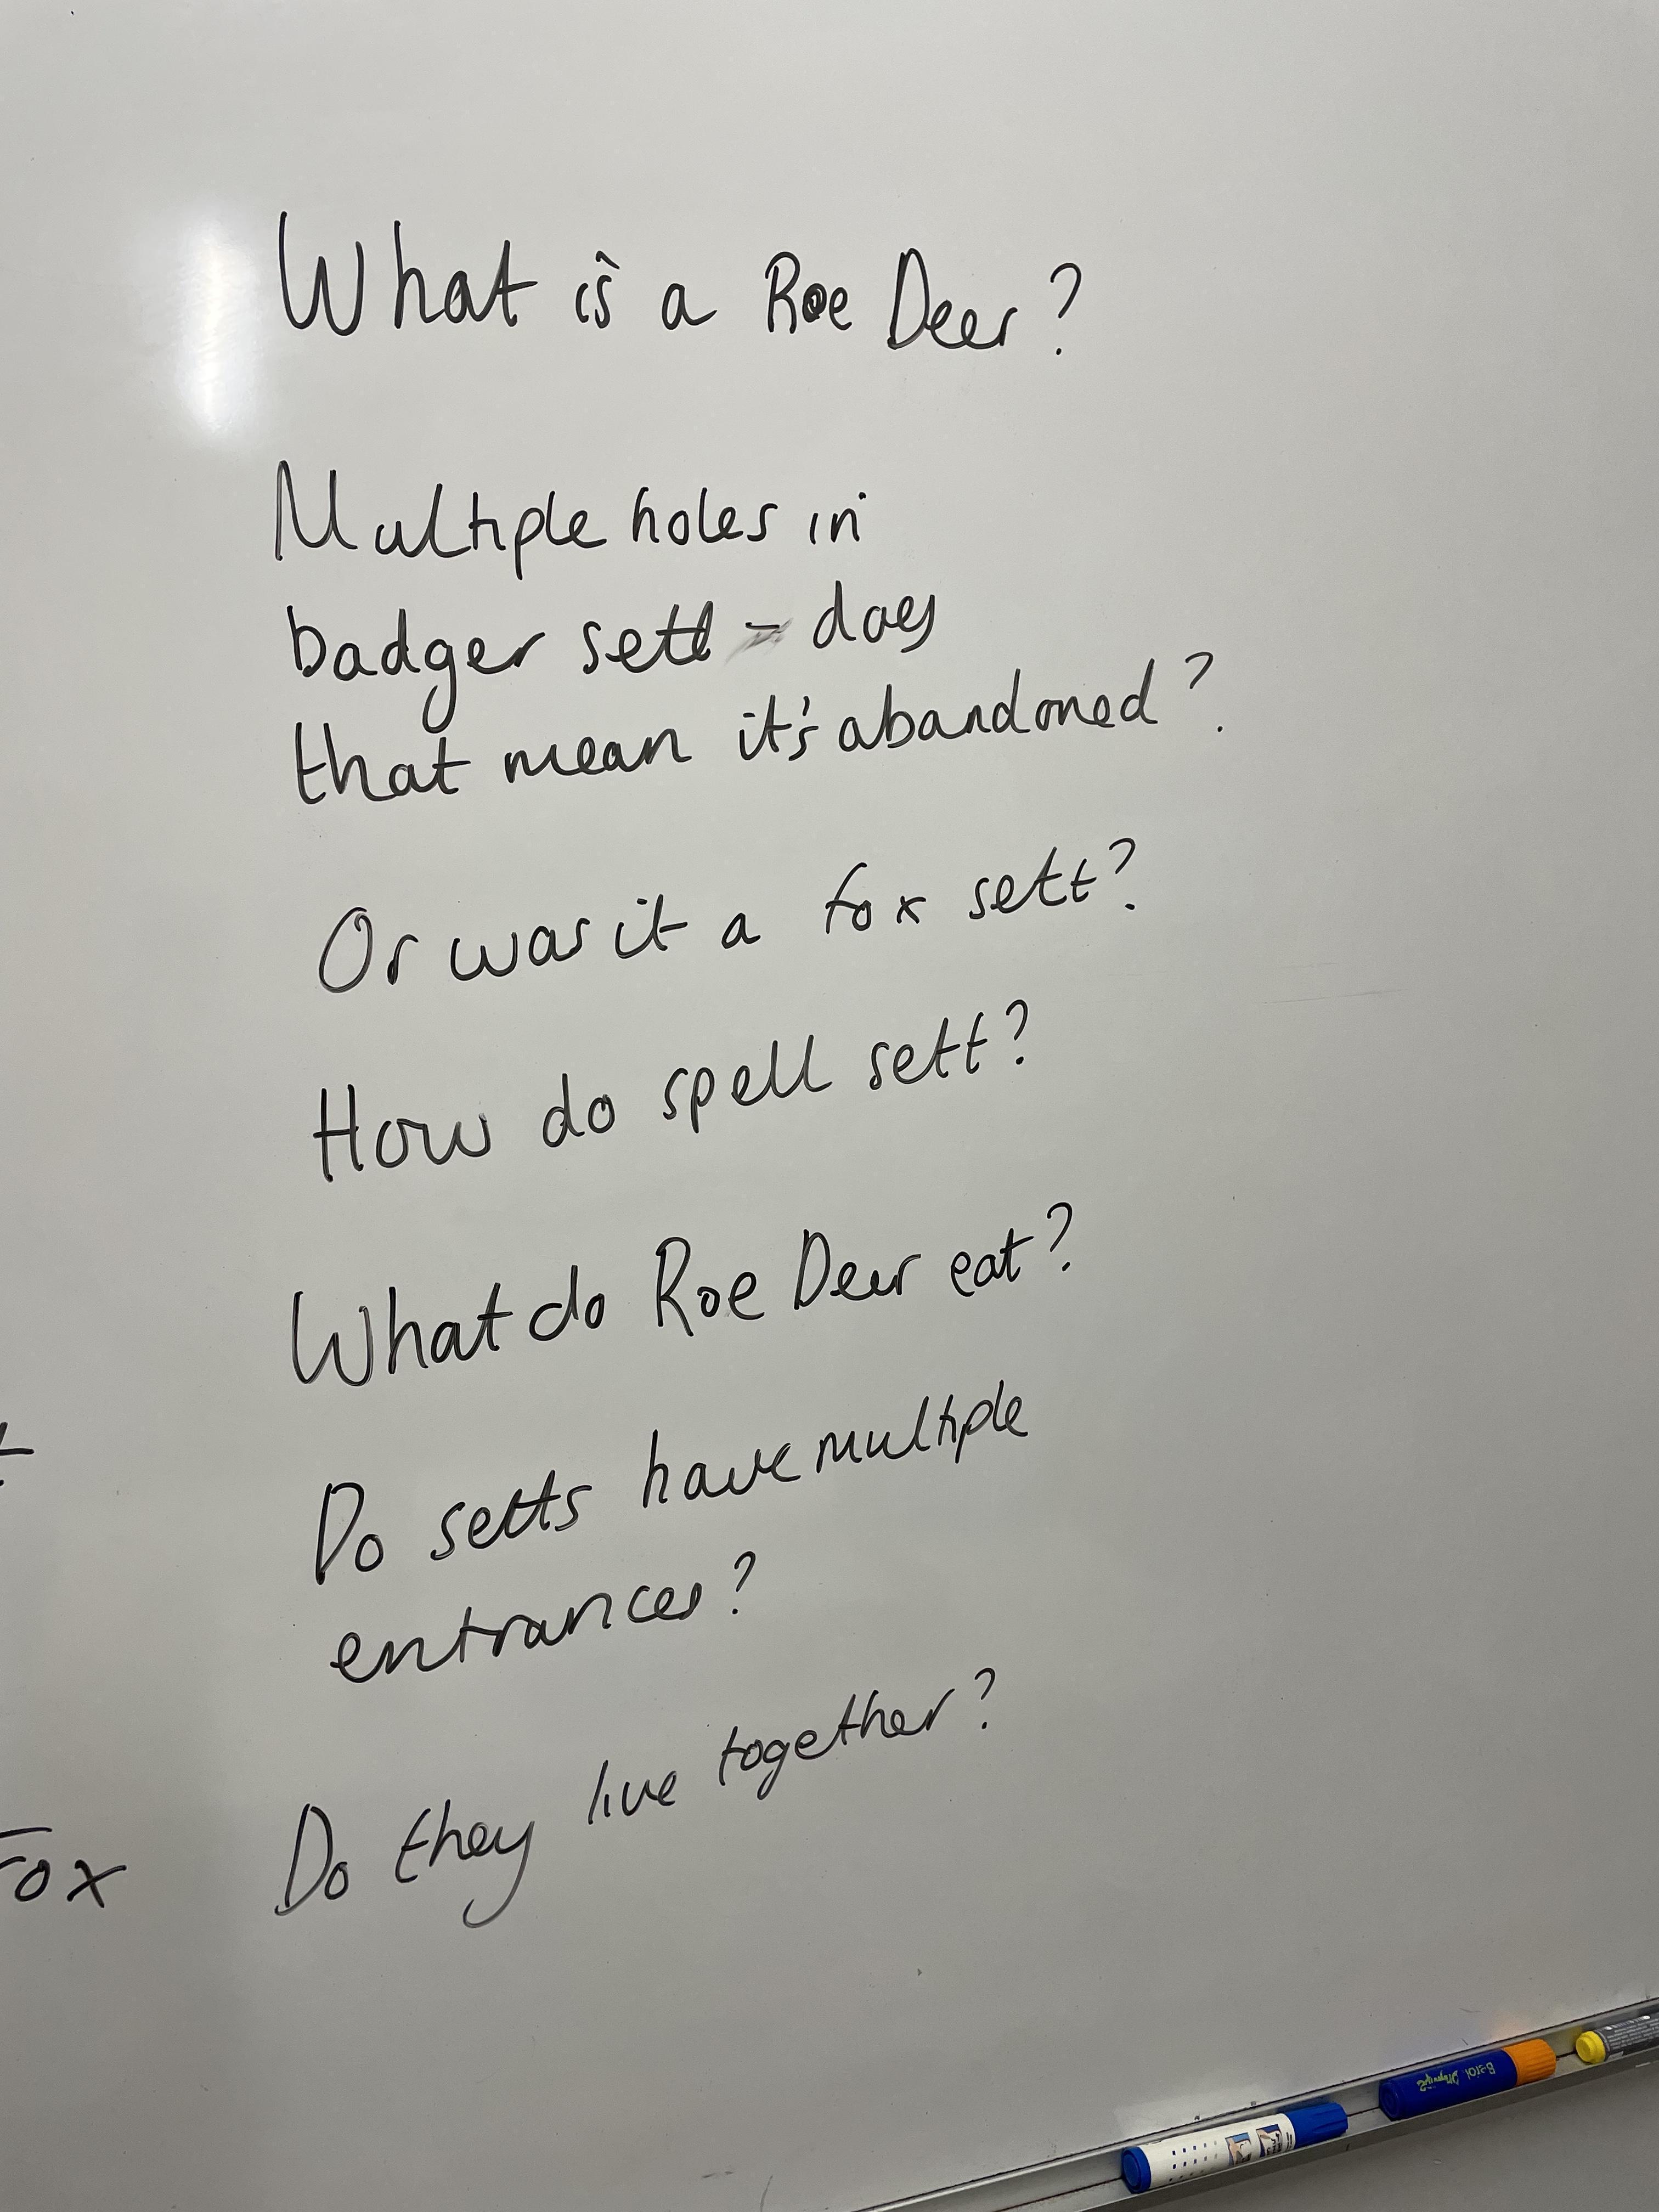 What is a Roe Deer?
Multiple holes in
badger sett - does
that mean it's abandoned?
Or was it a fox sett?
How do spell sett?
What do Roe Deer eat?
Do setts have multiple
entrances?
Fox
Do they live together?
Berol